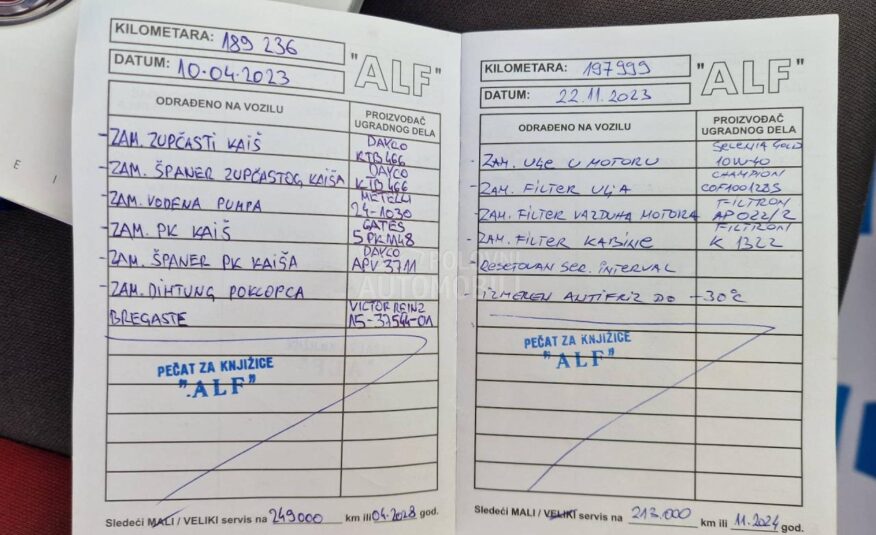 KILOMETARA: 189 236
DATUM: 10.04.2023
"ALF"
ODRAĐENO NA VOZILU
PROIZVOĐAČ UGRADNOG DELA
- ZAM. ZUPČASTI KAIŠ DAYCO KTB 466
- ZAM. ŠPANER ZUPČASTOG KAIŠA DAYCO KTB 466
- ZAM. VODENA PUMPA METELLI 24-1030
- ZAM. PK KAIŠ GATES 5PKM48
- ZAM. ŠPANER PK KAIŠA DAYCO APV 3711
- ZAM. DIHTUNG POKLOPCA
BREGASTE VICTOR REINZ 15-37544-01
PEČAT ZA KNJIŽICE
"ALF"
Sledeći MALI / VELIKI servis na 249000 km ili 04.2028 god.
KILOMETARA: 197999
DATUM: 22.11.2023
"ALF"
ODRAĐENO NA VOZILU
PROIZVOĐAČ UGRADNOG DELA
- ZAM. ULJE U MOTORU SELENIA GOLD 10W40
- ZAM. FILTER ULJA CHAMPION COF100128S
- ZAM. FILTER VAZDUHA MOTORA FILTRON AP022/2
- ZAM. FILTER KABINE FILTRON K 1322
- RESETOVAN SER. INTERVAL
- IZMEREN ANTIFRIZ DO -30°C
PEČAT ZA KNJIŽICE
"ALF"
Sledeći MALI / VELIKI servis na 213.000 km ili 11.2024 god.